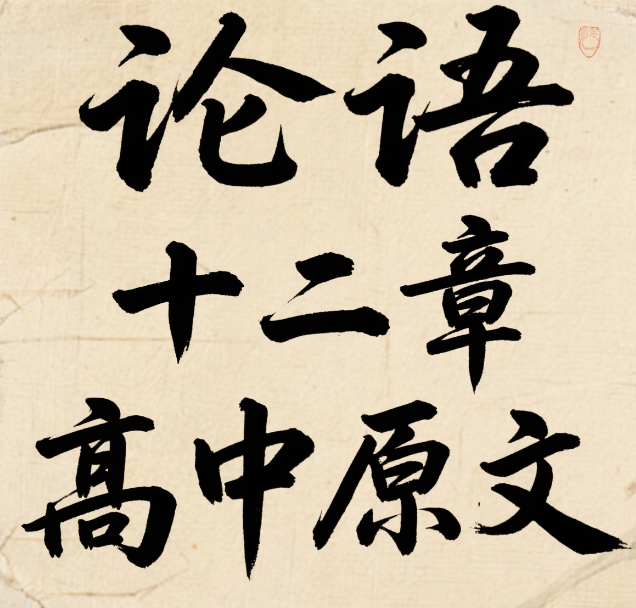 论语
十二章
高中原文